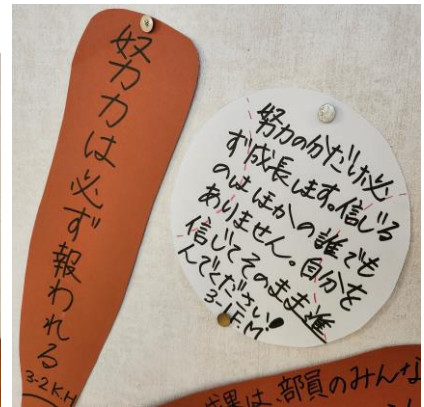 努力は必ず報われる
3-2 K.H
努力の分だけ必
ず成長します。信じる
のはほかの誰でも
ありません。自分を
信じてそのまま進
んでください!
3-1 F.M
成果は、部員のみんな